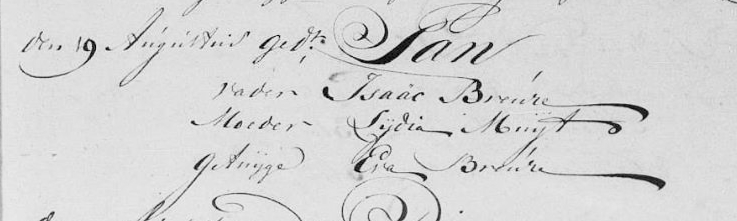 den 19 Augustus gedt. Jan
vader Isaäc Breure
Moeder Lydia Muijt
getuijge Eva Breure